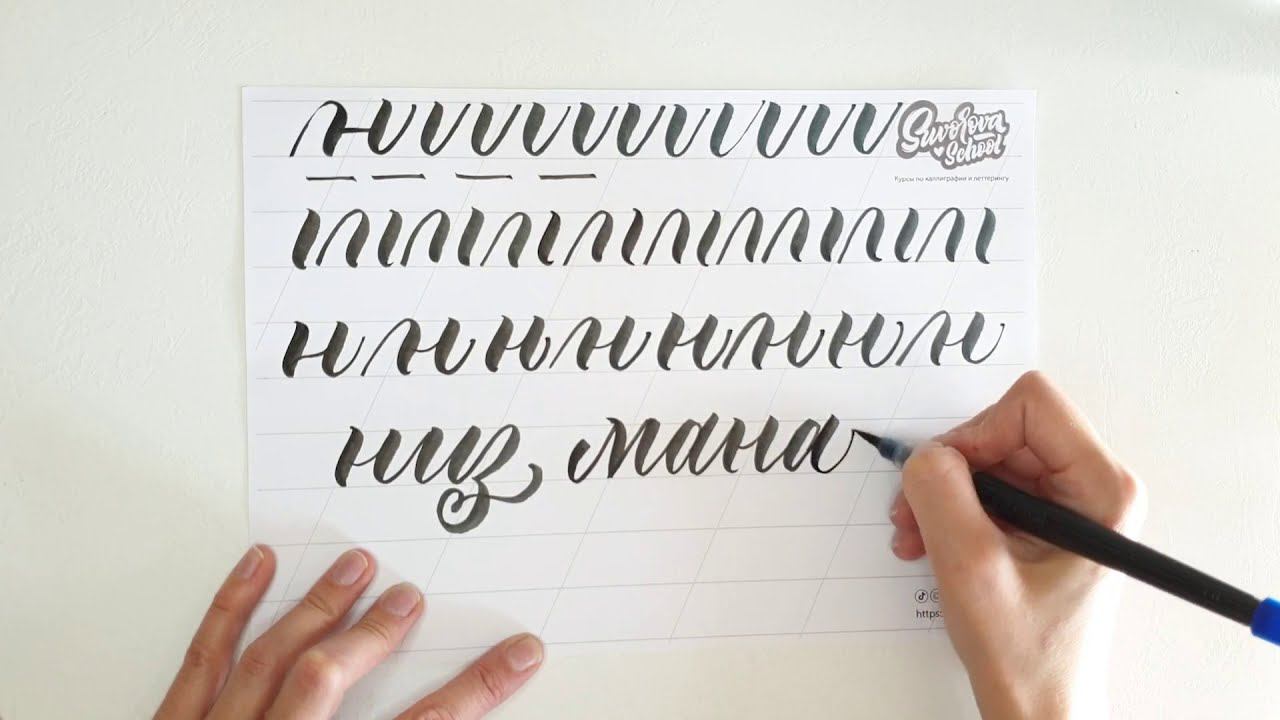 Suvorova
School
Курсы по каллиграфии и леттерингу
н н н н н н н н
низ мана
https: